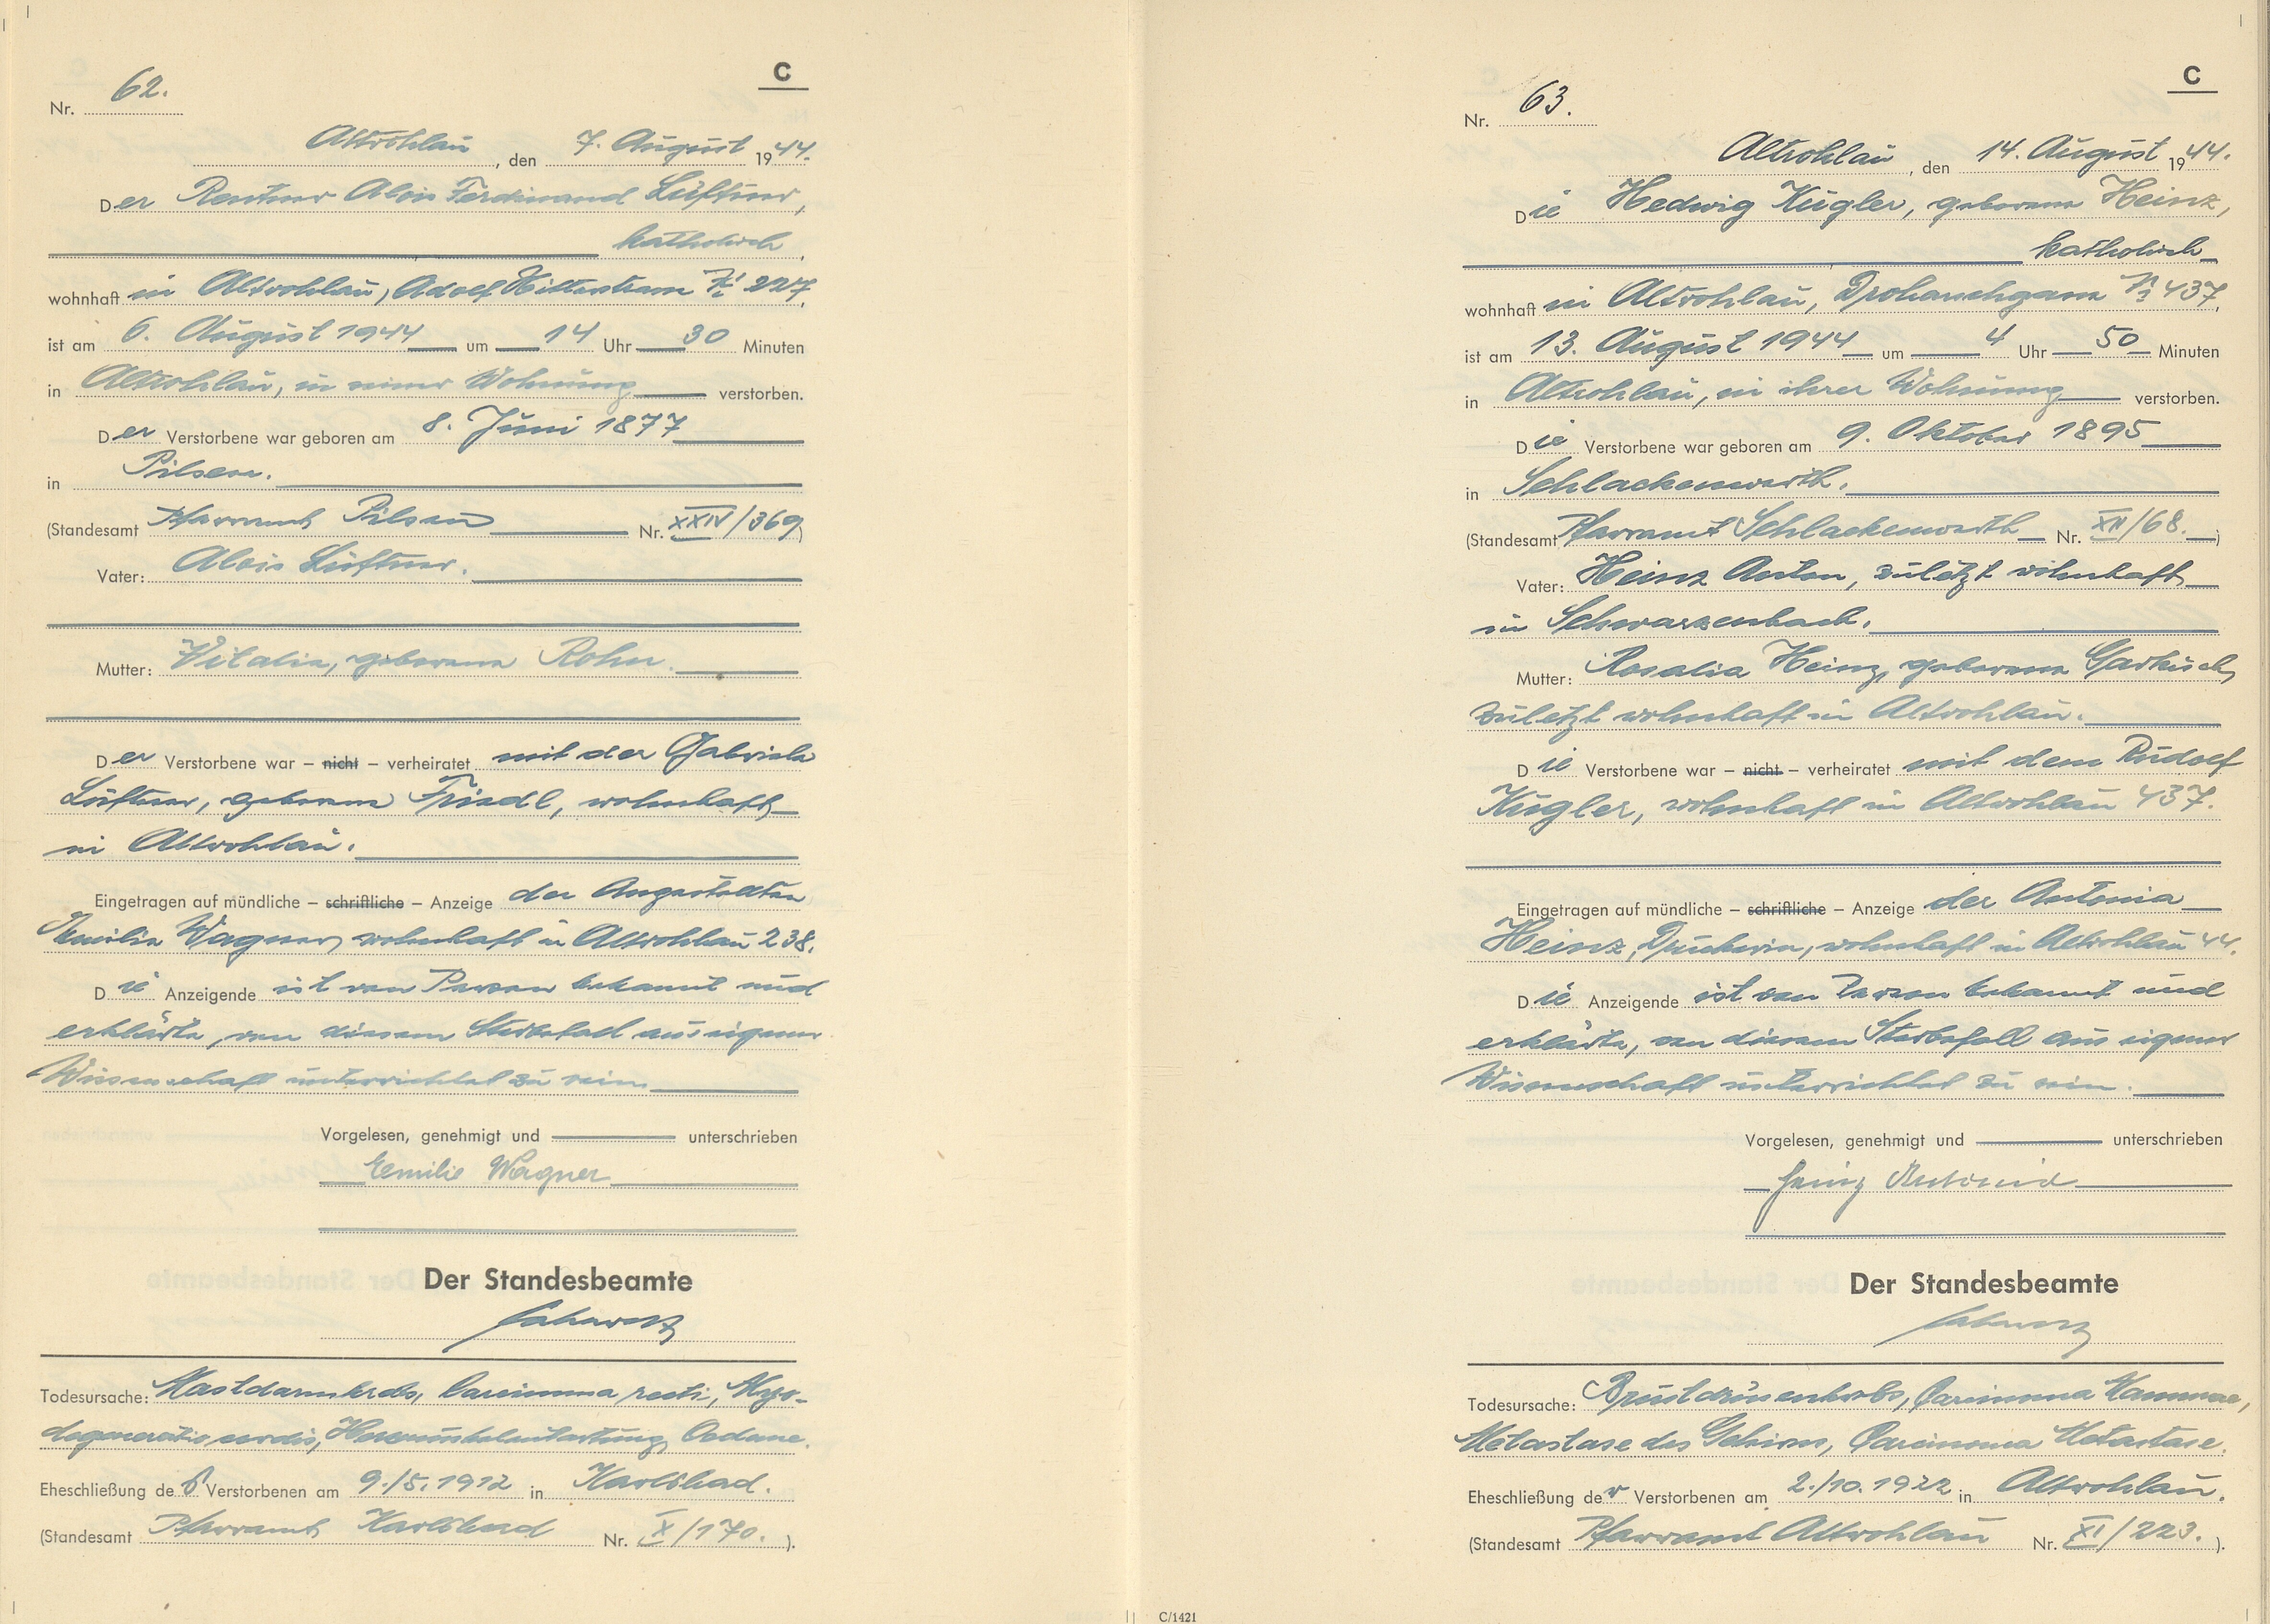 C
Nr. 62.
Altrohlau, den 7. August 1944.
Der Rentner Alois Ferdinand Lüftner,
katholisch,
wohnhaft in Altrohlau, Adolf Hitlerstrasse Nr 227,
ist am 6. August 1944 um 14 Uhr 30 Minuten
in Altrohlau, in seiner Wohnung verstorben.
Der Verstorbene war geboren am 8. Juni 1877
in Pilsen.
(Standesamt Pfarramt Pilsen Nr. XXIV/369)
Vater: Alois Lüftner.
Mutter: Vitalia, geborene Rohn.
Der Verstorbene war – nicht – verheiratet mit der Gabriele
Lüftner, geborene Friedl, wohnhaft
in Altrohlau.
Eingetragen auf mündliche – schriftliche – Anzeige der Angestellten
Emilie Wagner, wohnhaft in Altrohlau 238.
Die Anzeigende ist von Person bekannt und
erklärte, von diesem Sterbefall aus eigener
Wissenschaft unterrichtet zu sein.
Vorgelesen, genehmigt und unterschrieben
Emilie Wagner
Der Standesbeamte
Todesursache: Mastdarmkrebs, Carcinoma recti, Myo-
degeneratio cordis, Herzmuskelentartung, Oedeme.
Eheschließung des Verstorbenen am 9./5.1912 in Karlsbad.
(Standesamt Pfarramt Karlsbad Nr. X/170.).
C
Nr. 63.
Altrohlau, den 14. August 1944.
Die Hedwig Kugler, geborene Heinz,
katholisch
wohnhaft in Altrohlau, Nr 437,
ist am 13. August 1944 um 4 Uhr 50 Minuten
in Altrohlau, in ihrer Wohnung verstorben.
Die Verstorbene war geboren am 9. Oktober 1895
in Schlackenwerth.
(Standesamt Pfarramt Schlackenwerth Nr. XII/68.)
Vater: Heinz Anton, zuletzt wohnhaft
in Schwarzenbach.
Mutter: Rosalia Heinz, geborene
zuletzt wohnhaft in Altrohlau.
Die Verstorbene war – nicht – verheiratet mit dem Rudolf
Kugler, wohnhaft in Altrohlau 437.
Eingetragen auf mündliche – schriftliche – Anzeige der Antonia
Heinz, wohnhaft in Altrohlau 44.
Die Anzeigende ist von Person bekannt und
erklärte, von diesem Sterbefall aus eigener
Wissenschaft unterrichtet zu sein.
Vorgelesen, genehmigt und unterschrieben
Heinz Antonia
Der Standesbeamte
Todesursache: Brustdrüsenkrebs, Carcinoma Mammae,
Metastase des Gehirns, Carcinoma Metastase.
Eheschließung der Verstorbenen am 2./10.1922 in Altrohlau.
(Standesamt Pfarramt Altrohlau Nr. XI/223.).
C/1421